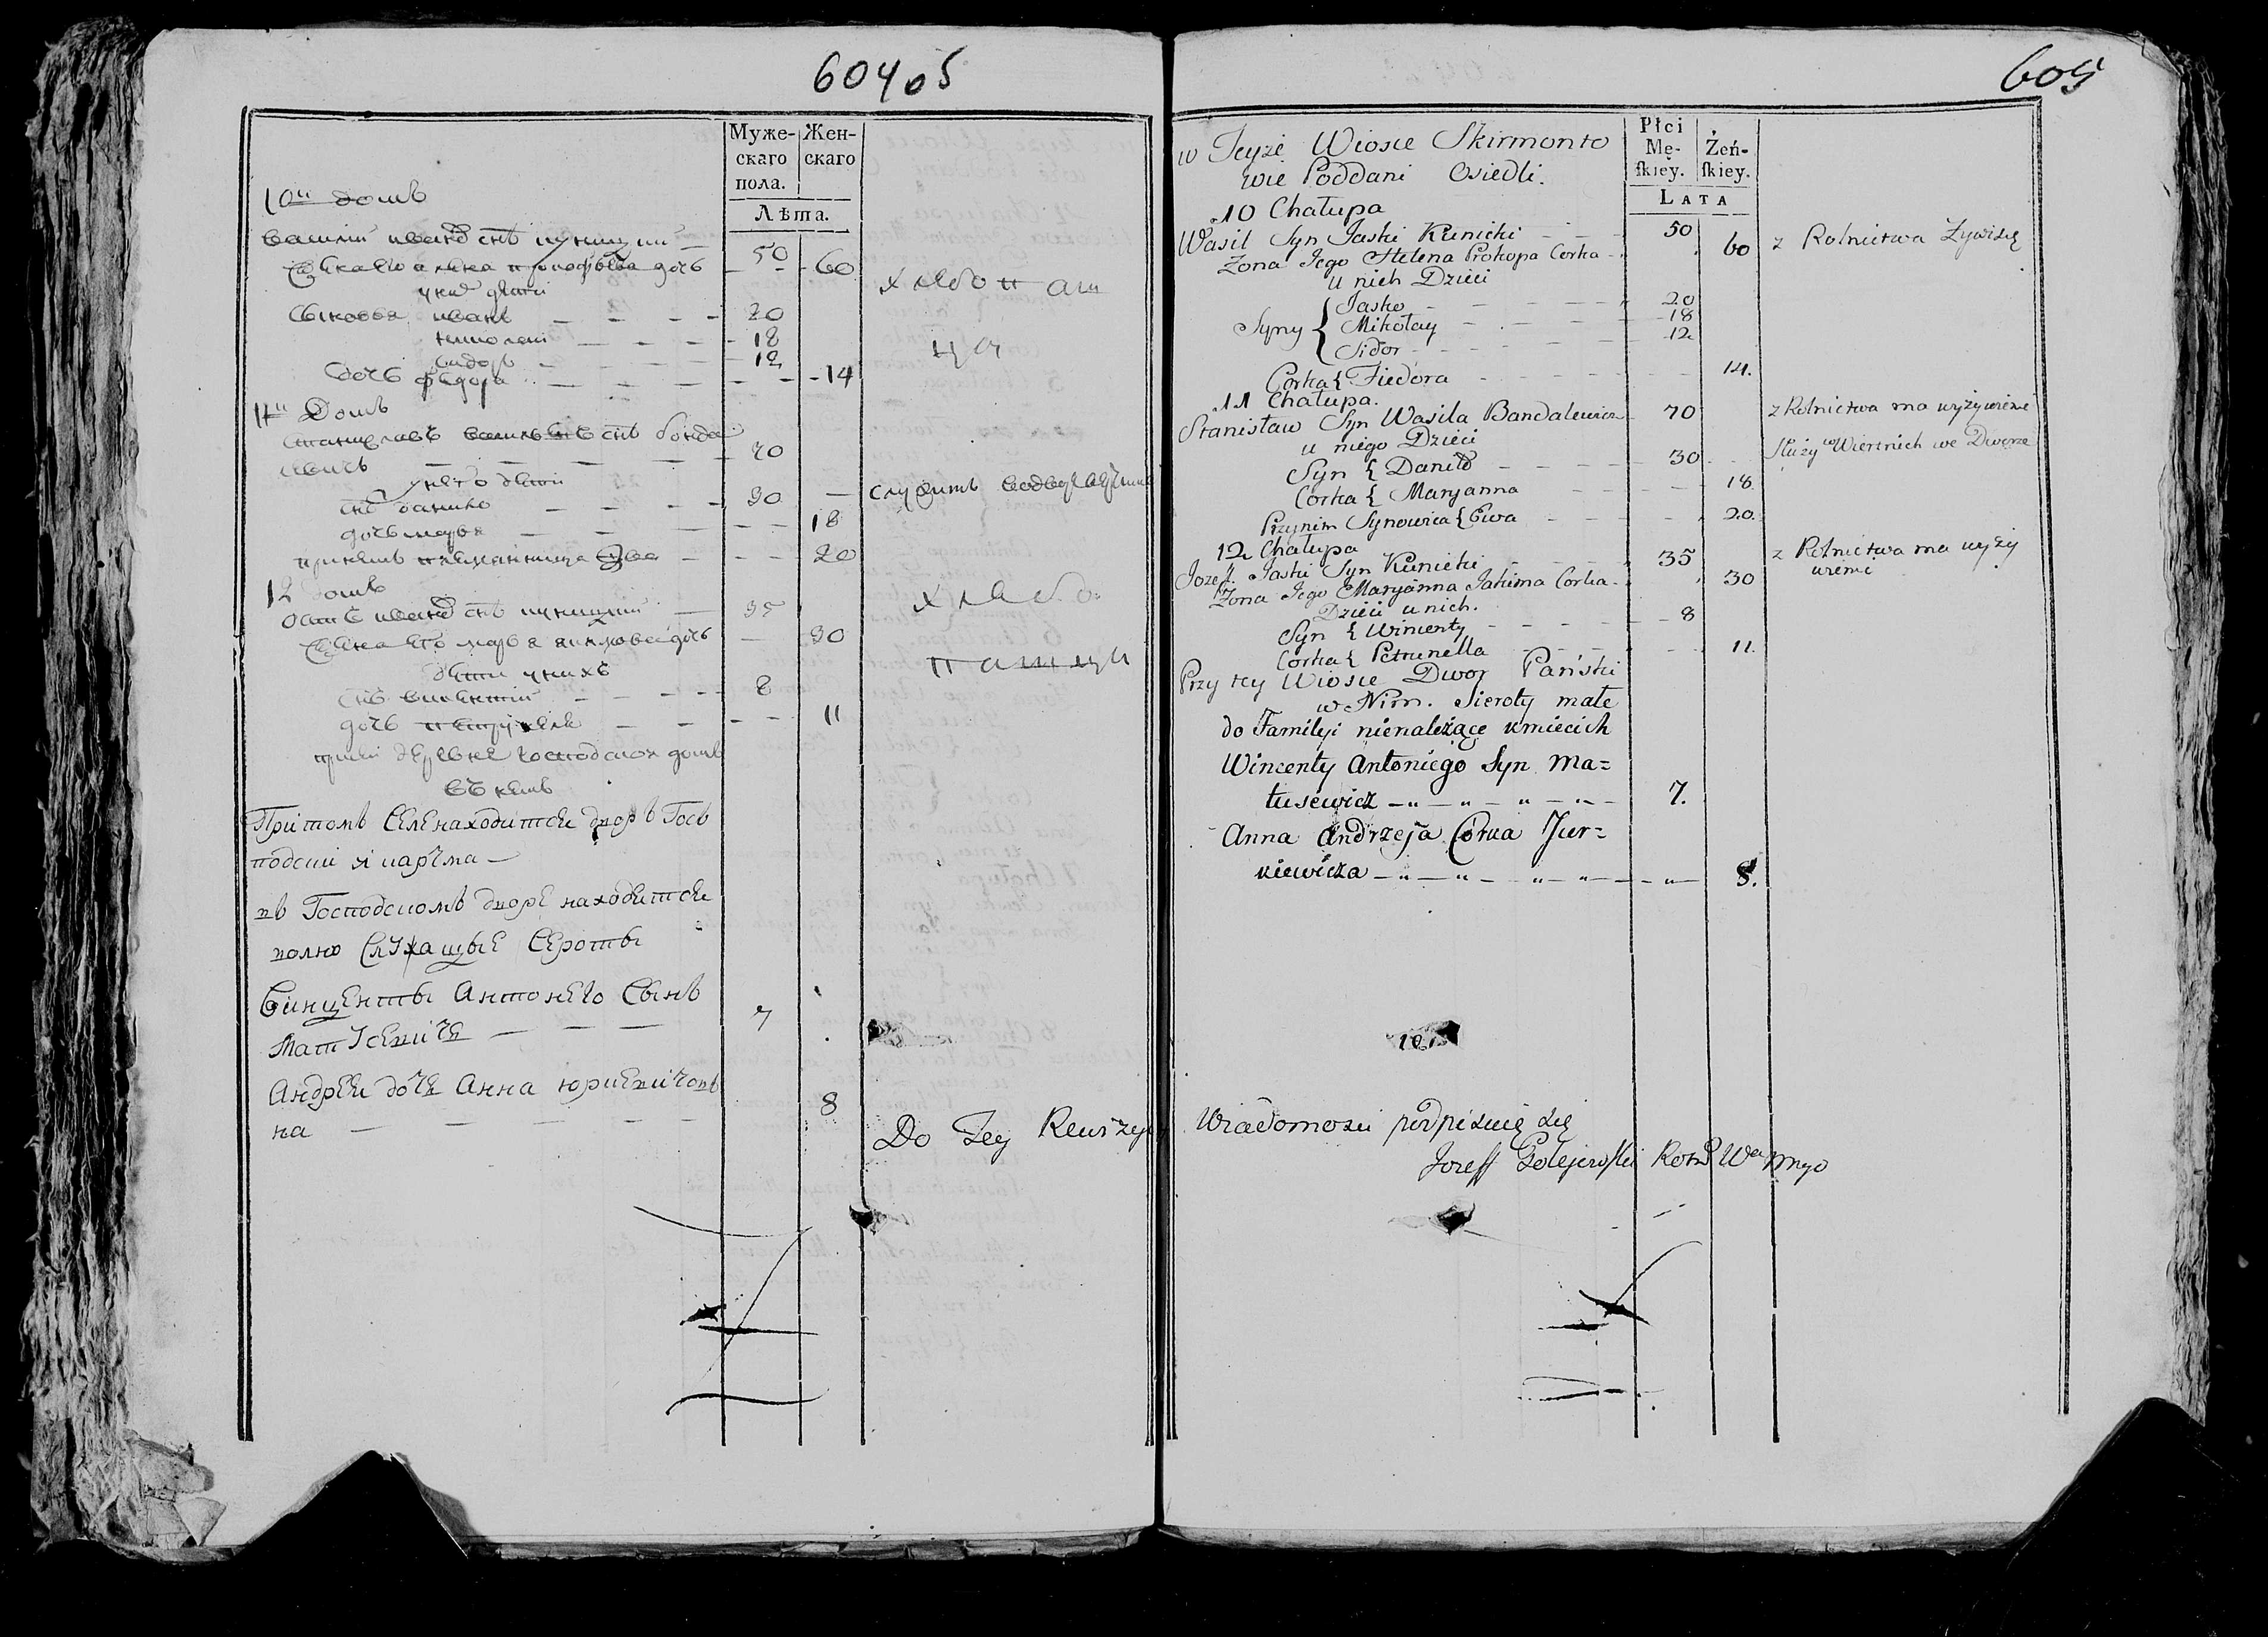 60405
Муже-
скаго
пола.
Жен-
скаго
Лѣта.
10й домъ
василий иванов снъ куницкий — 50
жена его алена прокофьева дочь — 60
у них дети
хлебопаш
сыновья иванъ — — — 20
николай — — — 18
цы
сидоръ — — — 12
дочь федора — — — 14
11й Домъ
станиславъ васильевъ снъ бонда
левичъ — — — — 70
у него дети
снъ данило — — — 30 — служитъ
дочь марья — — — 18
при немъ племянница Ева — — — 20
12 домъ
осипъ иванов снъ куницкий — 35
хлебо
жена его марья якимова дочь — 30
пашцы
дети у нихъ
снъ викентий — — — 8
дочь петрунеля — — — 11
при деревне господской домъ
въ немъ
При томъ селе находитси дворъ Гос
подски и карчма —
въ Господскомъ дворе находитси
Служащые Сероты
Винценты Антонего Сынъ
Матусевичь — — — 7
Андреи дочь Анна юркевичов
на — — — — — 8
Do Tey Rewizyi
605
Płci
Mę-
ſkiey.
Żeń-
ſkiey.
LATA
w Teyże Wiosce Skirmonto
wie Poddani Osiedli.
10 Chałupa
Wasil Syn Jaśki Kunicki — — 50 z Rolnictwa Żywi się
Żona Jego Helena Prokopa Corka — 60
u nich Dzieci
Syny { Jasko — — — 20
Mikołay — — — 18
Sidor — — — 12
Corka { Fiedora — — — 14.
11 Chałupa.
Stanisław Syn Wasila Bandalewicz — 70 z Rolnictwa ma wyżywienie
u niego Dzieci
Syn { Daniło — — — 30 Służy we Dworze
Corka { Maryanna — — — 18
Przynim Synowica { Ewa — — — 20.
12 Chałupa
Jozef. Jaśki Syn Kunicki — — 35 z Rolnictwa ma wyży
wienie
Żona Jego Maryanna Jakima Corka — 30
Dzieci u nich.
Syn { Wincenty — — — 8
Corka { Petrunella — — — 11.
Przy tey Wiosce Dwor Pański
w Nim. Sieroty małe
do Familyi nienależące kmiecich
Wincenty Antoniego Syn Ma=
tusewicz — „ — „ — „ — „ — 7.
Anna Andrzeja Corka Jur=
kiewicza — „ — „ — „ — „ — „ — 8.
Wiadomosci podpisuię się
Jozeff